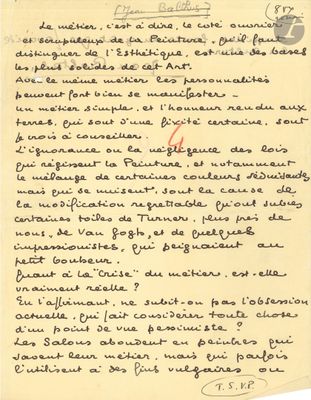 (Jean Balthus) (87)
Le métier, c'est à dire, le coté ouvrier
et scrupuleux de la Peinture, qu'il faut
distinguer de l'Esthétique, est une des bases
les plus solides de cet Art.
Avec le même métier les personnalités
peuvent fort bien se manifester –
Un métier simple, et l'honneur rendu aux
terres, qui sont d'une fixité certaine, sont
je crois à conseiller.
L'ignorance ou la négligence des lois
qui régissent la Peinture, et notamment
le mélange de certaines couleurs séduisantes
mais qui se nuisent, sont la cause de
la modification regrettable qu'ont subies
certaines toiles de Turner, plus près de
nous, de Van Gogh, et de quelques
impressionistes, qui peignaient au
petit bonheur.
Quant à la "Crise" du métier, est-elle
vraiment réelle ?
En l'affirmant, ne subit-on pas l'obsession
actuelle, qui fait considérer toute chose
d'un point de vue pessimiste ?
Les Salons abondent en peintres qui
savent leur métier, mais qui parfois
l'utilisent à des fins vulgaires ou
T.S.V.P.